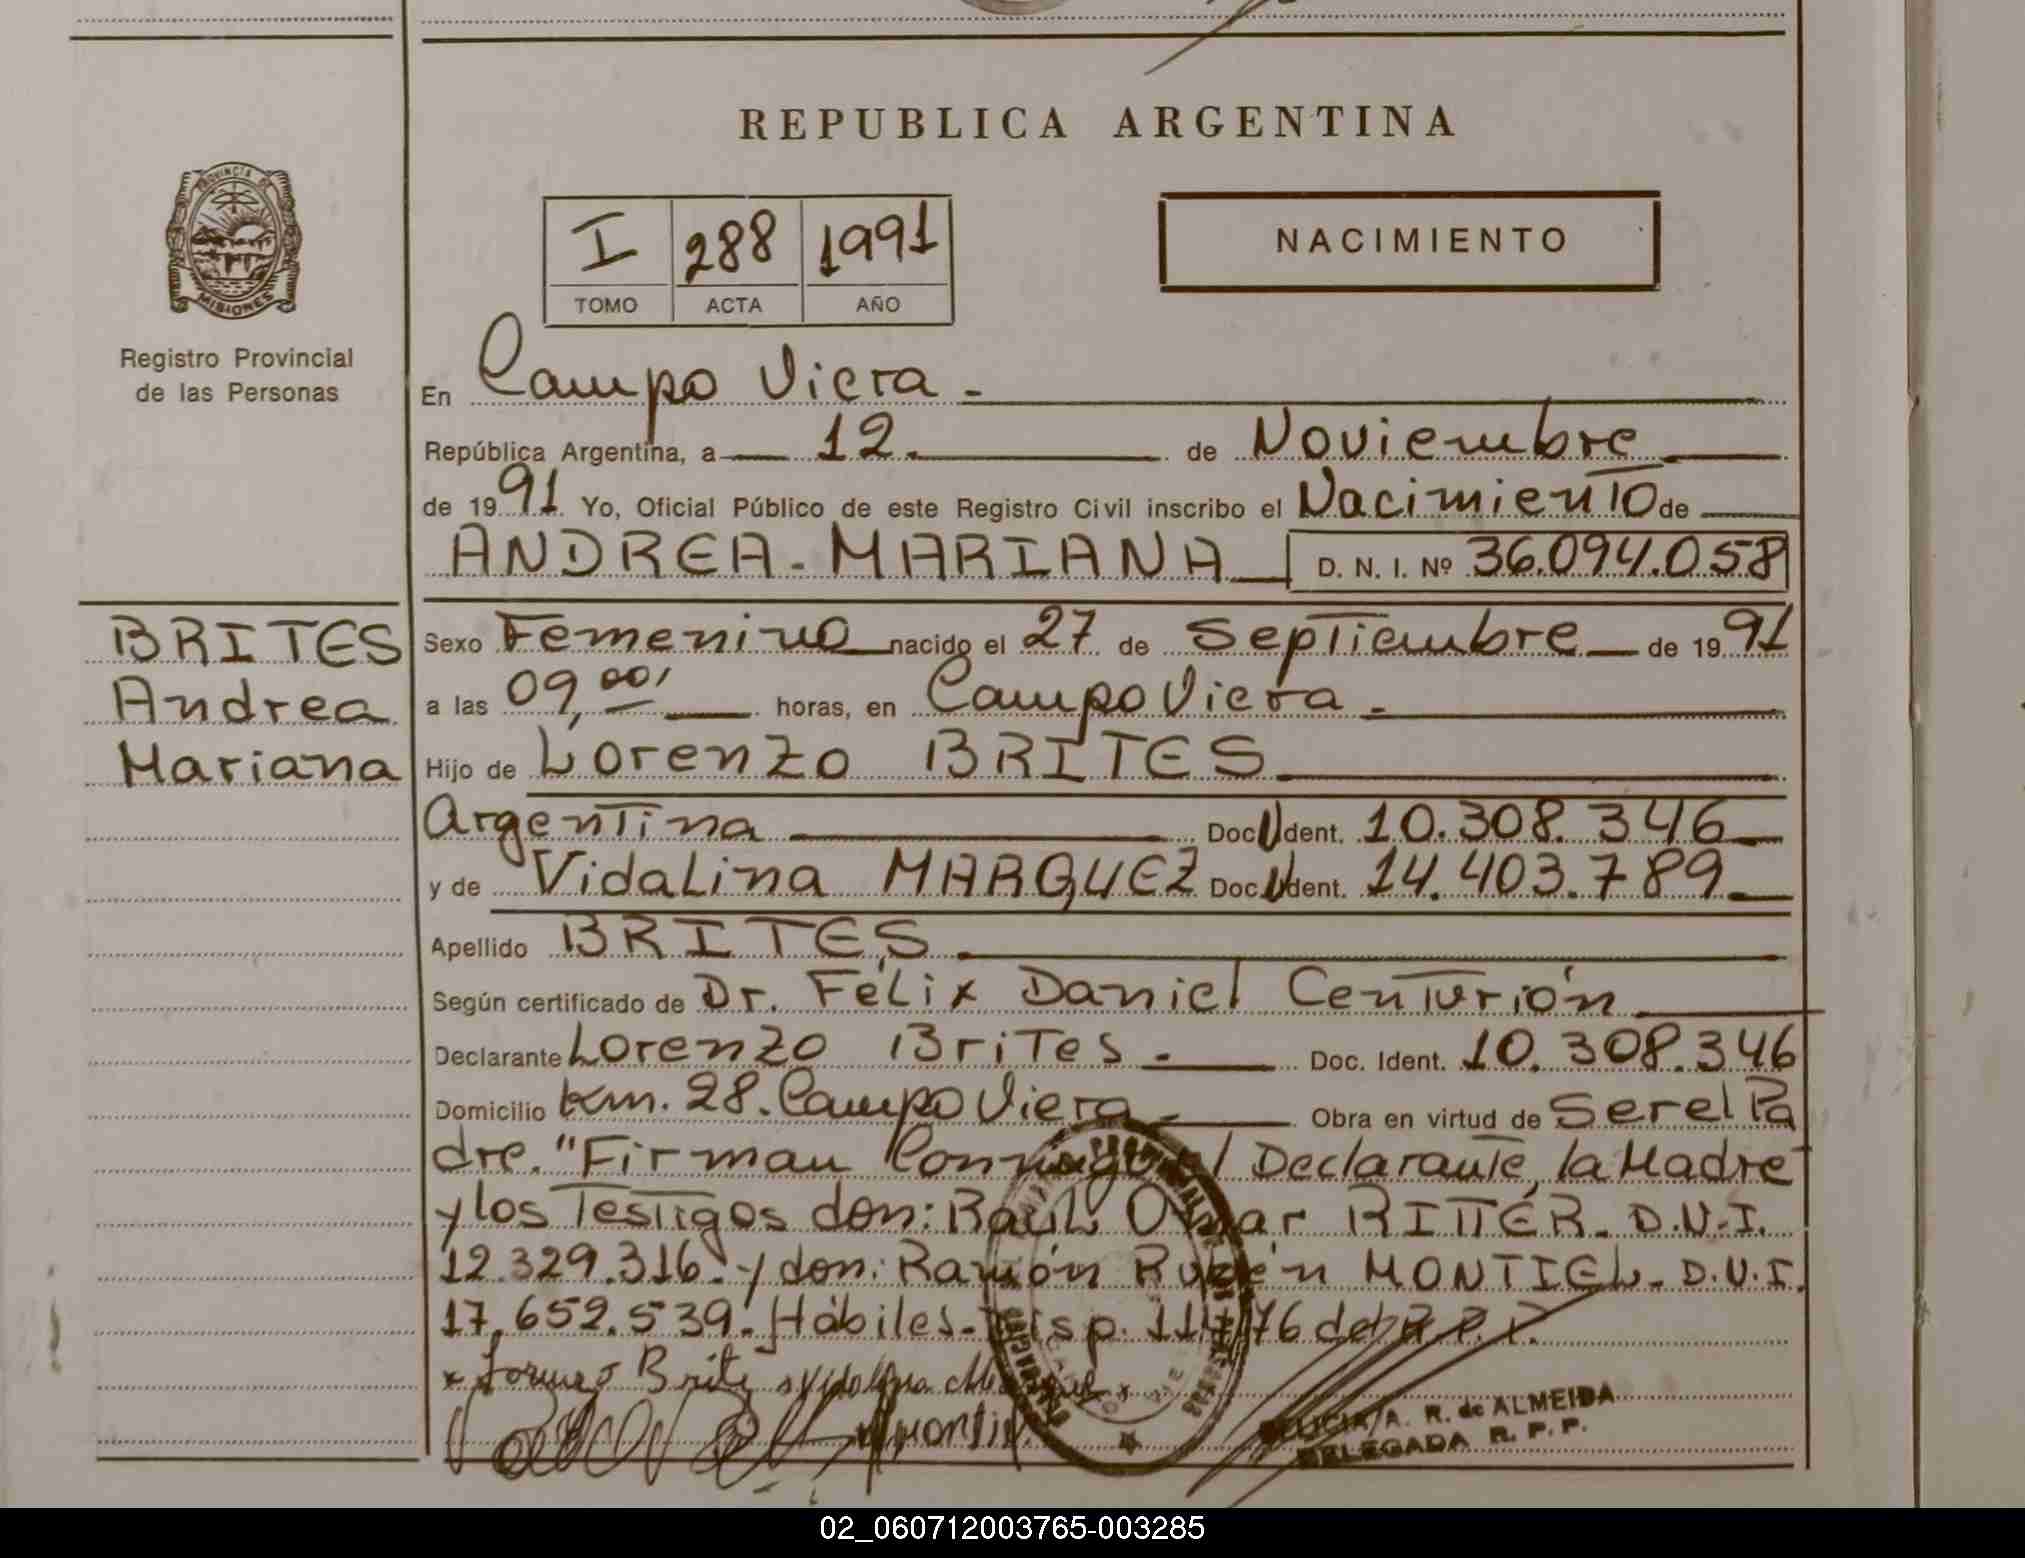 REPUBLICA ARGENTINA
PROVINCIA DE
MISIONES
Registro Provincial
de las Personas
I 288 1991
TOMO ACTA AÑO
NACIMIENTO
En Campo Viera.-
República Argentina, a 12. de Noviembre
de 1991 Yo, Oficial Público de este Registro Civil inscribo el Nacimiento de
ANDREA-MARIANA D. N. I. Nº 36.094.058
BRITES
Andrea
Mariana
Sexo Femenino nacido el 27 de Septiembre de 1991
a las 09,00' horas, en Campo Viera.-
Hijo de Lorenzo BRITES
Argentina Doc.U Ident. 10.308.346
y de Vidalina MARQUEZ Doc.U Ident. 14.403.789.
Apellido BRITES
Según certificado de Dr. Félix Daniel Centurión
Declarante Lorenzo Brites.- Doc. Ident. 10.308.346
Domicilio km. 28. Campo Viera.- Obra en virtud de Ser el Pa
dre. "Firman Conmigo el Declarante, la Madre
y los Testigos don: Raúl Omar RITTER. D.N.I.
12.329.316. y don: Ramón Rubén MONTIEL. D.N.I.
17.652.539. Hábiles- Disp. 114/76 del R.P.P.
Lorenzo Brites Vidalina
A. R. de ALMEIDA
DELEGADA R. P. P.
02_060712003765-003285